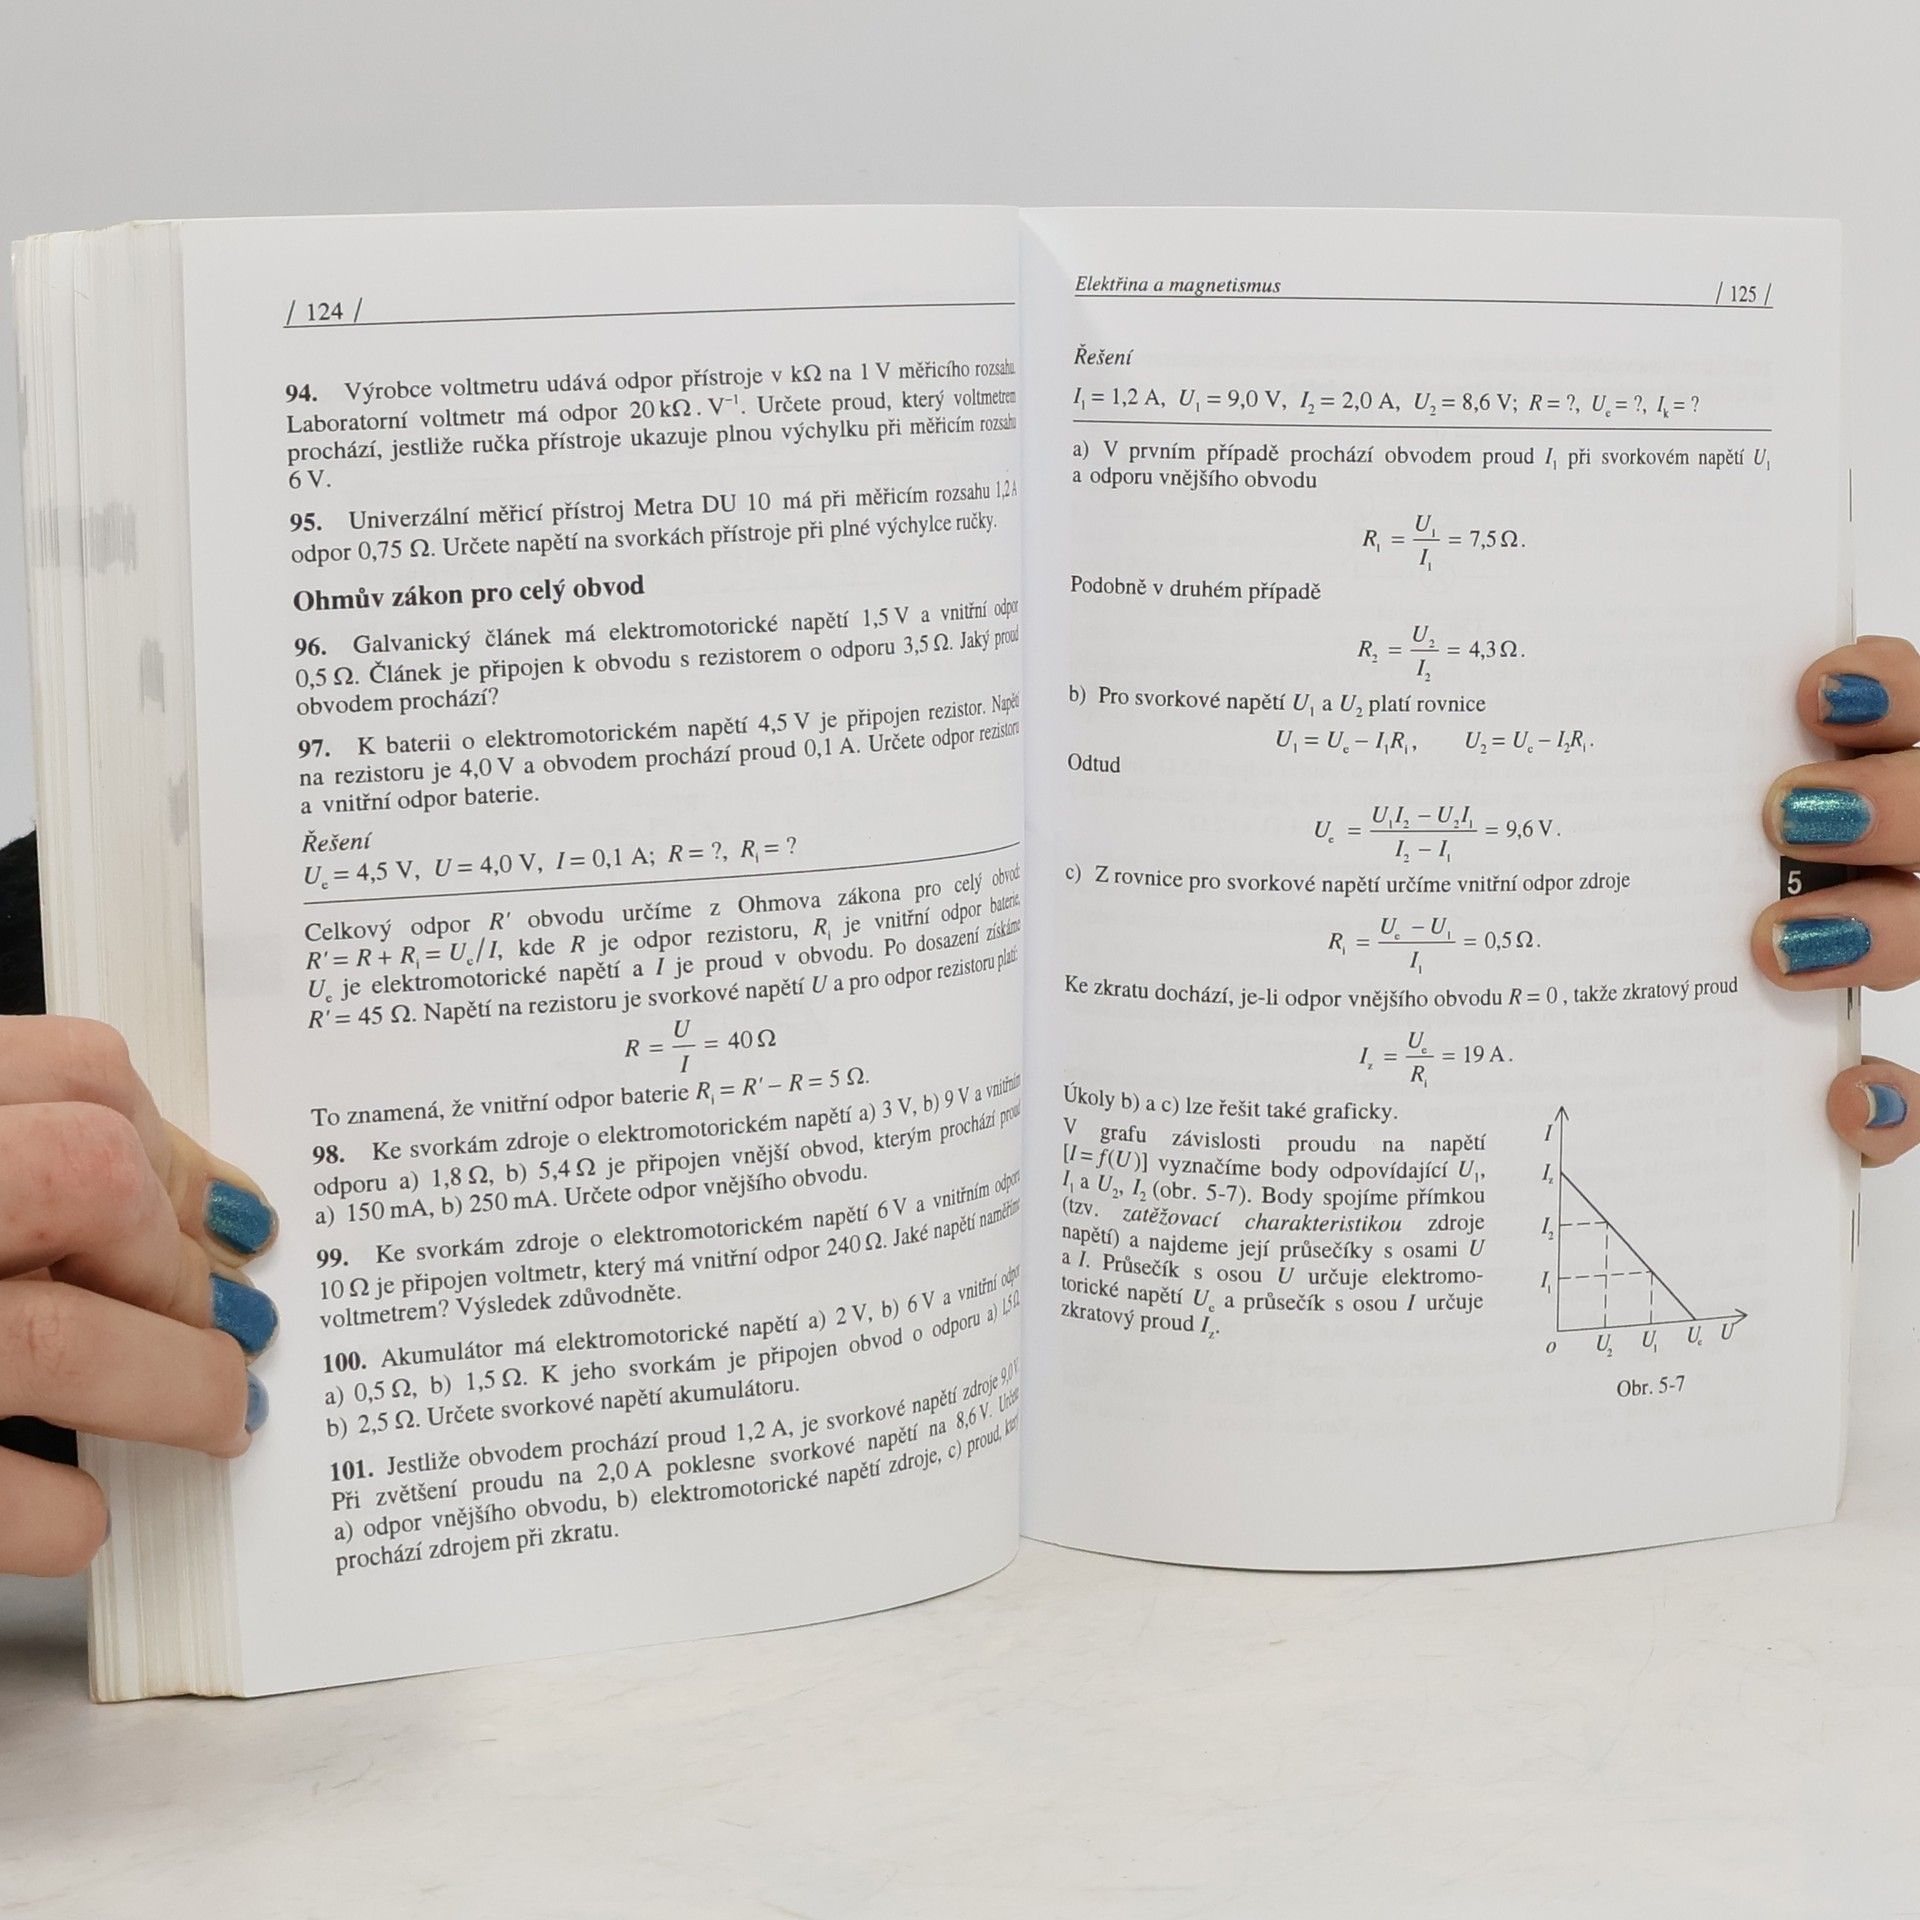 / 124 /
94. Výrobce voltmetru udává odpor přístroje v kΩ na 1 V měřicího rozsahu.
Laboratorní voltmetr má odpor 20 kΩ . V⁻¹. Určete proud, který voltmetrem
prochází, jestliže ručka přístroje ukazuje plnou výchylku při měřicím rozsahu
6 V.
95. Univerzální měřicí přístroj Metra DU 10 má při měřicím rozsahu 1,2 A
odpor 0,75 Ω. Určete napětí na svorkách přístroje při plné výchylce ručky.
Ohmův zákon pro celý obvod
96. Galvanický článek má elektromotorické napětí 1,5 V a vnitřní odpor
0,5 Ω. Článek je připojen k obvodu s rezistorem o odporu 3,5 Ω. Jaký proud
obvodem prochází?
97. K baterii o elektromotorickém napětí 4,5 V je připojen rezistor. Napětí
na rezistoru je 4,0 V a obvodem prochází proud 0,1 A. Určete odpor rezistoru
a vnitřní odpor baterie.
Řešení
Uₑ = 4,5 V, U = 4,0 V, I = 0,1 A; R = ?, Rᵢ = ?
Celkový odpor R' obvodu určíme z Ohmova zákona pro celý obvod:
R' = R + Rᵢ = Uₑ/I, kde R je odpor rezistoru, Rᵢ je vnitřní odpor baterie,
Uₑ je elektromotorické napětí a I je proud v obvodu. Po dosazení získáme
R' = 45 Ω. Napětí na rezistoru je svorkové napětí U a pro odpor rezistoru platí:
R = U/I = 40 Ω
To znamená, že vnitřní odpor baterie Rᵢ = R' – R = 5 Ω.
98. Ke svorkám zdroje o elektromotorickém napětí a) 3 V, b) 9 V a vnitřním
odporu a) 1,8 Ω, b) 5,4 Ω je připojen vnější obvod, kterým prochází proud
a) 150 mA, b) 250 mA. Určete odpor vnějšího obvodu.
99. Ke svorkám zdroje o elektromotorickém napětí 6 V a vnitřním odporu
10 Ω je připojen voltmetr, který má vnitřní odpor 240 Ω. Jaké napětí naměříme
voltmetrem? Výsledek zdůvodněte.
100. Akumulátor má elektromotorické napětí a) 2 V, b) 6 V a vnitřní odpor
a) 0,5 Ω, b) 1,5 Ω. K jeho svorkám je připojen obvod o odporu a) 1,5 Ω,
b) 2,5 Ω. Určete svorkové napětí akumulátoru.
101. Jestliže obvodem prochází proud 1,2 A, je svorkové napětí zdroje 9,0 V.
Při zvětšení proudu na 2,0 A poklesne svorkové napětí na 8,6 V. Určete
a) odpor vnějšího obvodu, b) elektromotorické napětí zdroje, c) proud, který
prochází zdrojem při zkratu.
Elektřina a magnetismus / 125 /
Řešení
I₁ = 1,2 A, U₁ = 9,0 V, I₂ = 2,0 A, U₂ = 8,6 V; R = ?, Uₑ = ?, Iₖ = ?
a) V prvním případě prochází obvodem proud I₁ při svorkovém napětí U₁
a odporu vnějšího obvodu
R₁ = U₁/I₁ = 7,5 Ω.
Podobně v druhém případě
R₂ = U₂/I₂ = 4,3 Ω.
b) Pro svorkové napětí U₁ a U₂ platí rovnice
U₁ = Uₑ – I₁Rᵢ, U₂ = Uₑ – I₂Rᵢ.
Odtud
Uₑ = (U₁I₂ – U₂I₁)/(I₂ – I₁) = 9,6 V.
c) Z rovnice pro svorkové napětí určíme vnitřní odpor zdroje
Rᵢ = (Uₑ – U₁)/I₁ = 0,5 Ω.
Ke zkratu dochází, je-li odpor vnějšího obvodu R = 0 , takže zkratový proud
I_z = Uₑ/Rᵢ = 19 A.
Úkoly b) a c) lze řešit také graficky.
V grafu závislosti proudu na napětí
[I = f(U)] vyznačíme body odpovídající U₁,
I₁ a U₂, I₂ (obr. 5-7). Body spojíme přímkou
(tzv. zatěžovací charakteristikou zdroje
napětí) a najdeme její průsečíky s osami U
a I. Průsečík s osou U určuje elektromo-
torické napětí Uₑ a průsečík s osou I určuje
zkratový proud I_z.
I
I_z
I₂
I₁
0 U₂ U₁ Uₑ U
Obr. 5-7
5